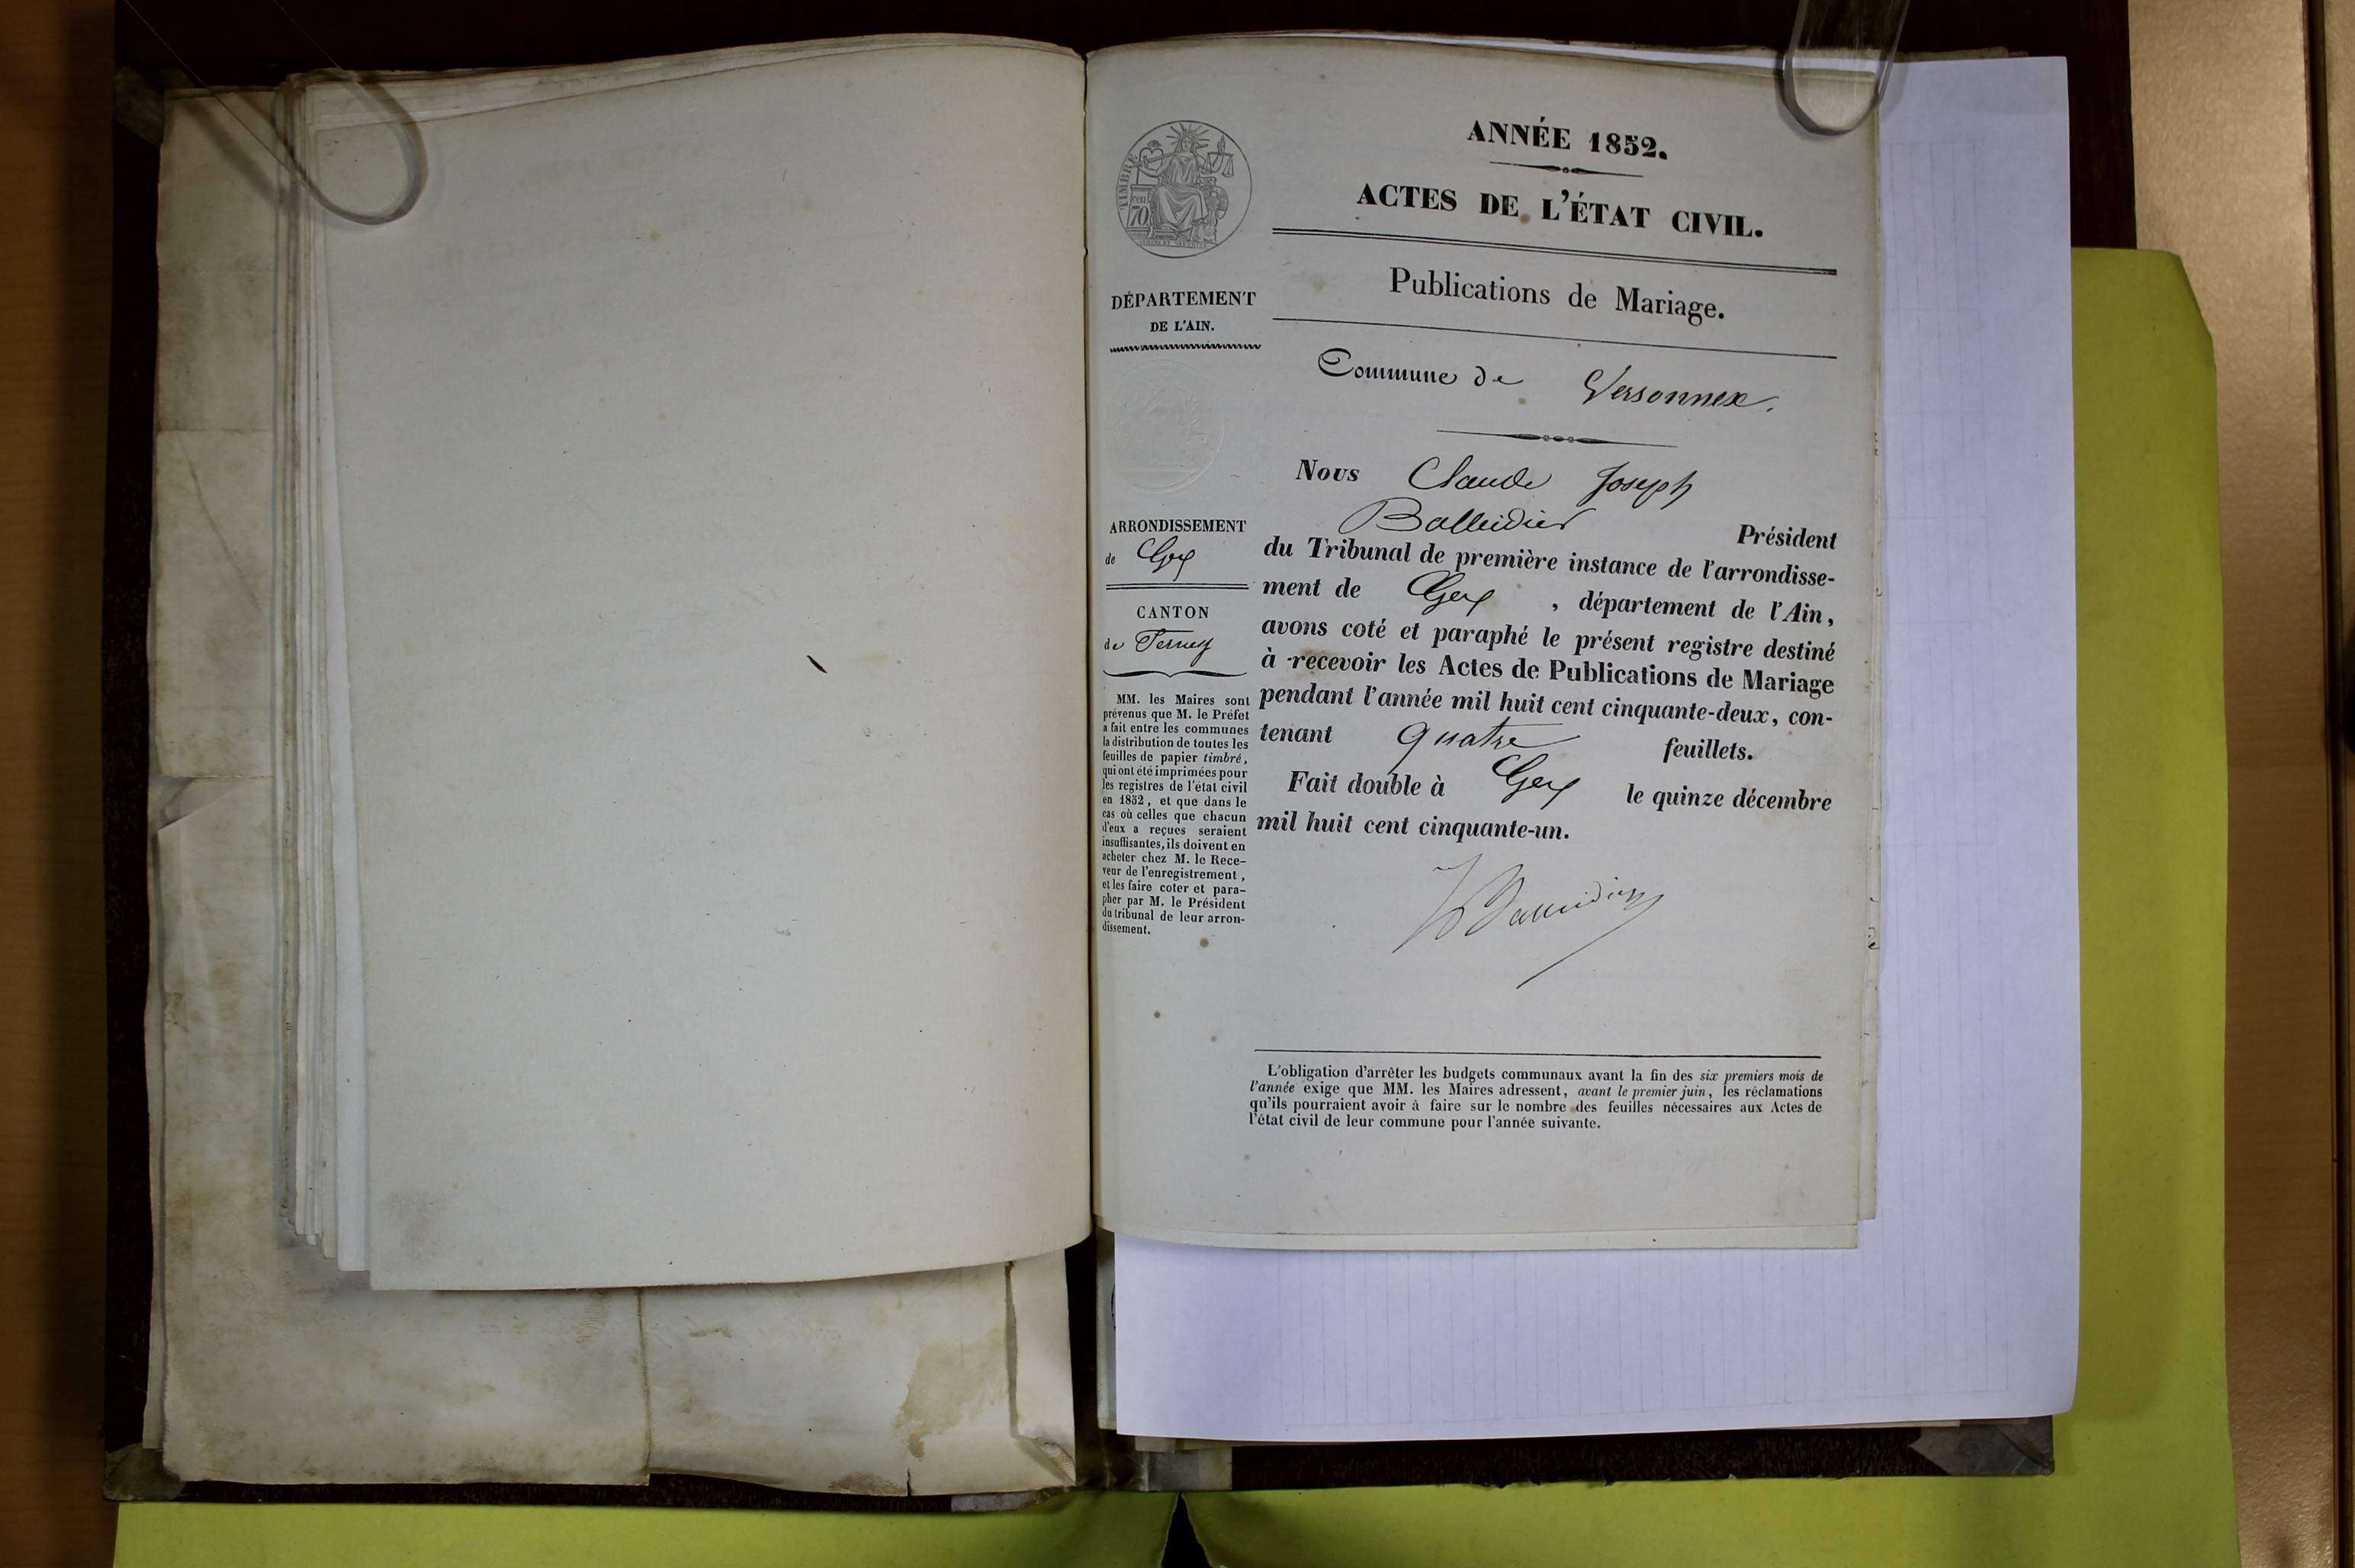 ANNÉE 1852.
ACTES DE L'ÉTAT CIVIL.
Publications de Mariage.
Commune de Versonnex.
TIMBRE
70
DÉPARTEMENT
DE L'AIN.
ARRONDISSEMENT
de Gex
CANTON
de Ferney
MM. les Maires sont
prévenus que M. le Préfet
a fait entre les communes
la distribution de toutes les
feuilles de papier timbré,
qui ont été imprimées pour
les registres de l'état civil
en 1852, et que dans le
cas où celles que chacun
d'eux a reçues seraient
insuffisantes, ils doivent en
acheter chez M. le Rece-
veur de l'enregistrement,
et les faire coter et para-
pher par M. le Président
du tribunal de leur arron-
dissement.
Nous Claude Joseph
Balleidier Président
du Tribunal de première instance de l'arrondisse-
ment de Gex, département de l'Ain,
avons coté et paraphé le présent registre destiné
à recevoir les Actes de Publications de Mariage
pendant l'année mil huit cent cinquante-deux, con-
tenant quatre feuillets.
Fait double à Gex le quinze décembre
mil huit cent cinquante-un.
Balleidier
L'obligation d'arrêter les budgets communaux avant la fin des six premiers mois de
l'année exige que MM. les Maires adressent, avant le premier juin, les réclamations
qu'ils pourraient avoir à faire sur le nombre des feuilles nécessaires aux Actes de
l'état civil de leur commune pour l'année suivante.